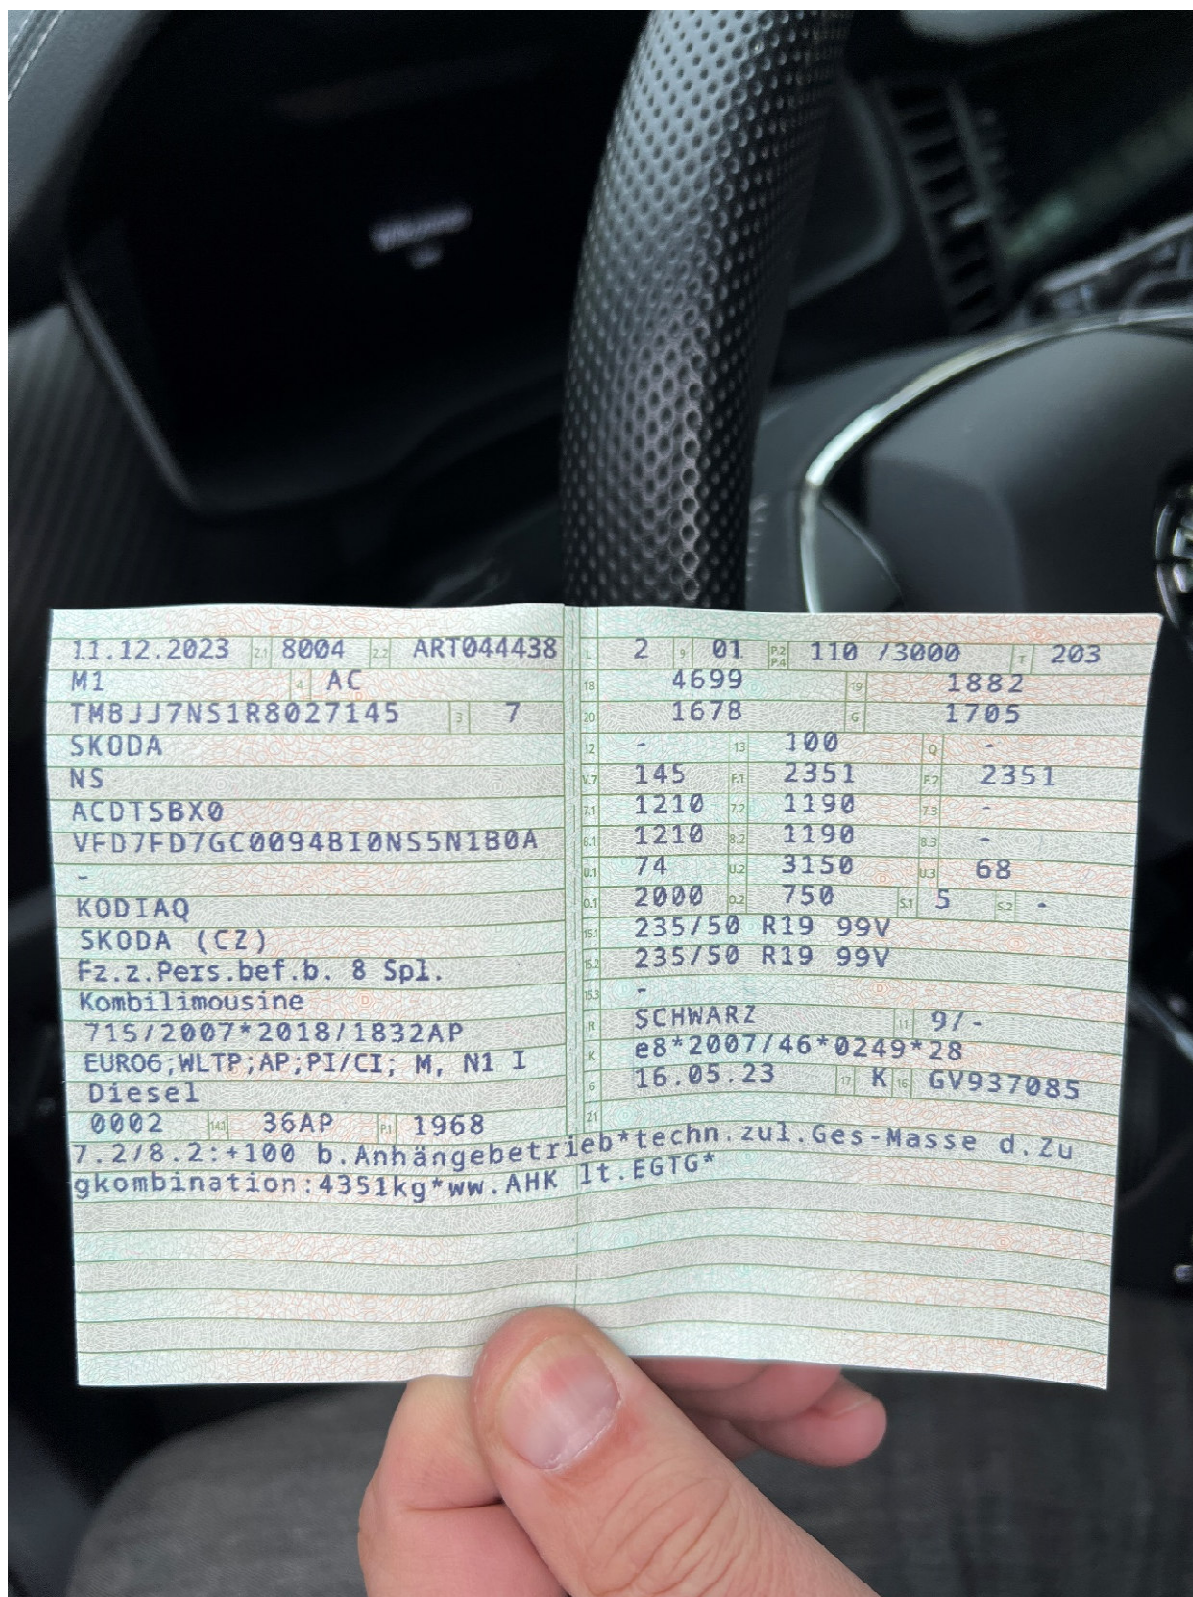 11.12.2023 2.1 8004 2.2 ART044438
M1 4 AC
TMBJJ7NS1R8027145 3 7
SKODA
NS
ACDTSBX0
VFD7FD7GC0094BI0NS5N1B0A
-
KODIAQ
SKODA (CZ)
Fz.z.Pers.bef.b. 8 Spl.
Kombilimousine
715/2007*2018/1832AP
EURO6;WLTP;AP;PI/CI; M, N1 I
Diesel
0002 14.1 36AP P.1 1968
L 2 9 01 P.2 P.4 110 /3000 T 203
18 4699 19 1882
20 1678 G 1705
12 - 13 100 Q -
V.7 145 F.1 2351 F.2 2351
7.1 1210 7.2 1190 7.3 -
8.1 1210 8.2 1190 8.3 -
U.1 74 U.2 3150 U.3 68
O.1 2000 O.2 750 S.1 5 S.2 -
15.1 235/50 R19 99V
15.2 235/50 R19 99V
15.3 -
R SCHWARZ 11 9/-
K e8*2007/46*0249*28
6 16.05.23 17 K 16 GV937085
21
7.2/8.2:+100 b.Anhängebetrieb*techn.zul.Ges-Masse d.Zu
gkombination:4351kg*ww.AHK lt.EGTG*